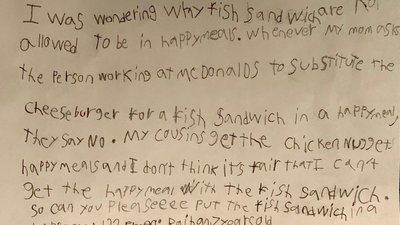 I was wondering why fish sandwich are not
allowed to be in happymeals. Whenever my mom asks
the person working at mcDonalds to substitute the
cheeseburger for a fish sandwich in a happymeal,
they say no. My cousins get the chicken nugget
happymeals and I don't think it's fair that I can't
get the happymeal with the fish sandwich.
So can you pleaseeee put the fish sandwich in a
Raihan 7 years old